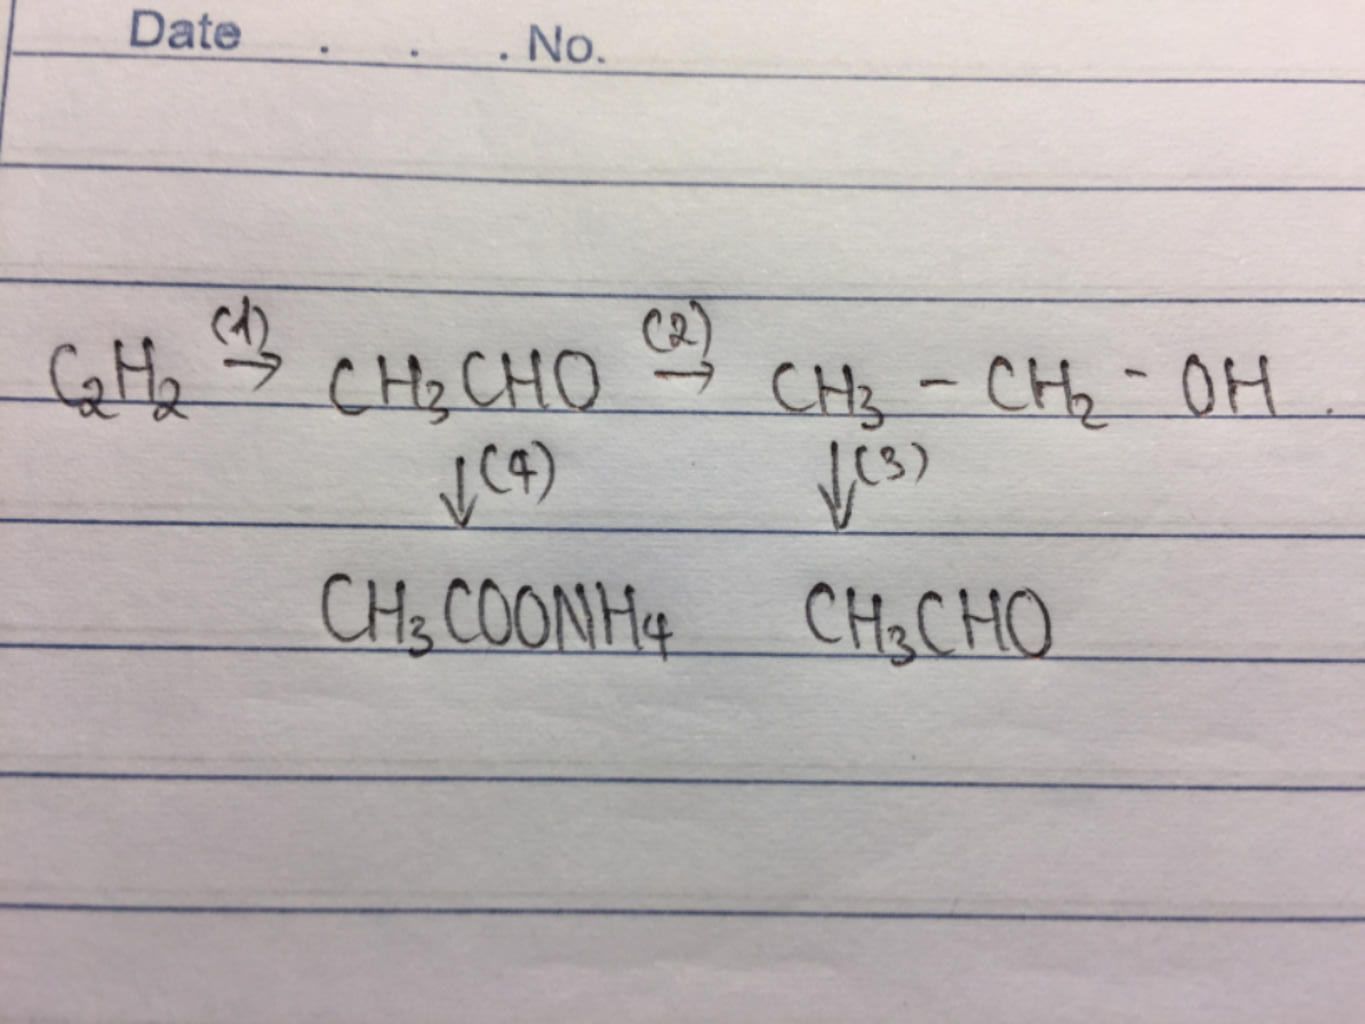 Date . . . No.
C₂H₂ (1)→ CH₃CHO (2)→ CH₃ - CH₂ - OH.
↓(4) ↓(3)
CH₃COONH₄ CH₃CHO